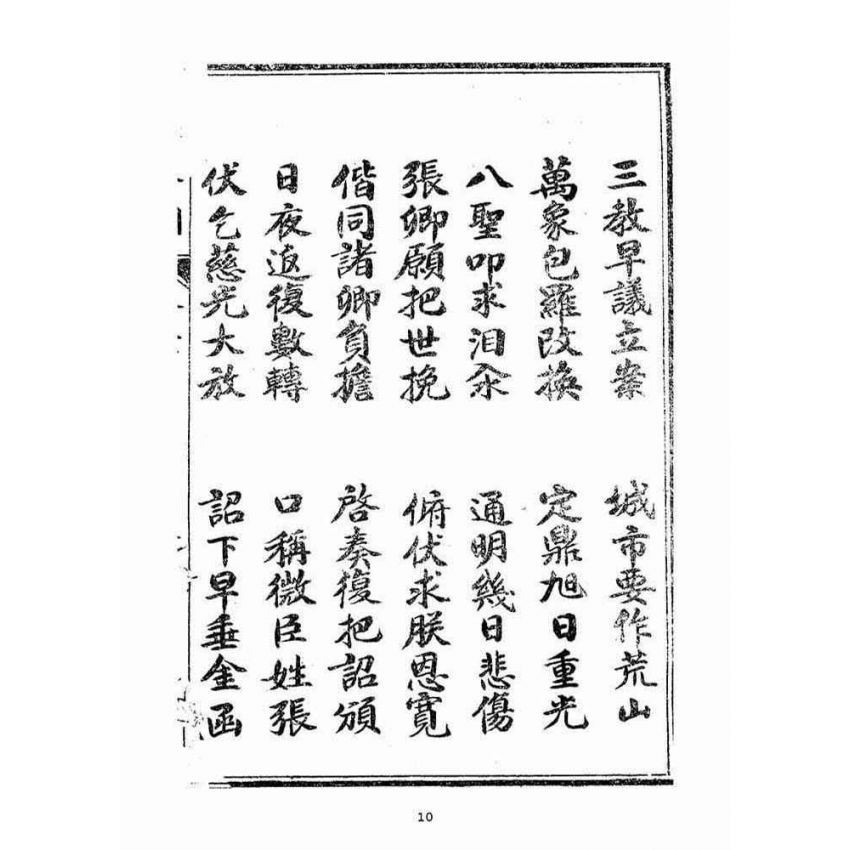 三教早議立案　城市要作荒山
萬象包羅改換　定鼎旭日重光
八聖叩求泪汆　通明幾日悲傷
張卿願把世挽　俯伏求朕恩寬
偕同諸卿負擔　啓奏復把詔頒
日夜返復數轉　口稱微臣姓張
伏乞慈光大放　詔下早垂金函
10